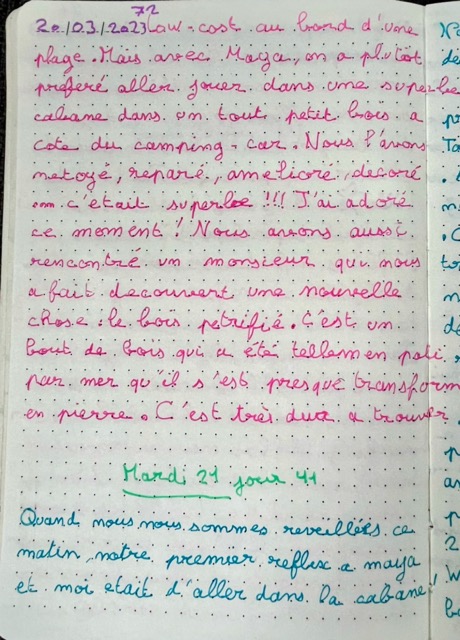 72
20/03/2023 Law-cost au bord d'une
plage. Mais avec Maya, on a plutôt
préferé aller jouer dans une superbe
cabane dans un tout petit bois a
cote du camping-car. Nous l'avons
netoyé, reparé, amelioré, decoré
... c'était superbe !!! J'ai adoré
ce moment ! Nous avons aussi
rencontré un monsieur qui nous
a fait decouvert une nouvelle
chose : le bois petrifié. C'est un
bout de bois qui a été tellemen poli
par mer qu'il s'est presque transform
en pierre. C'est très dur a trouver
Mardi 21 jour 41
Quand nous nous sommes reveillées ce
matin, notre premier reflex a maya
et moi etait d'aller dans la cabane !